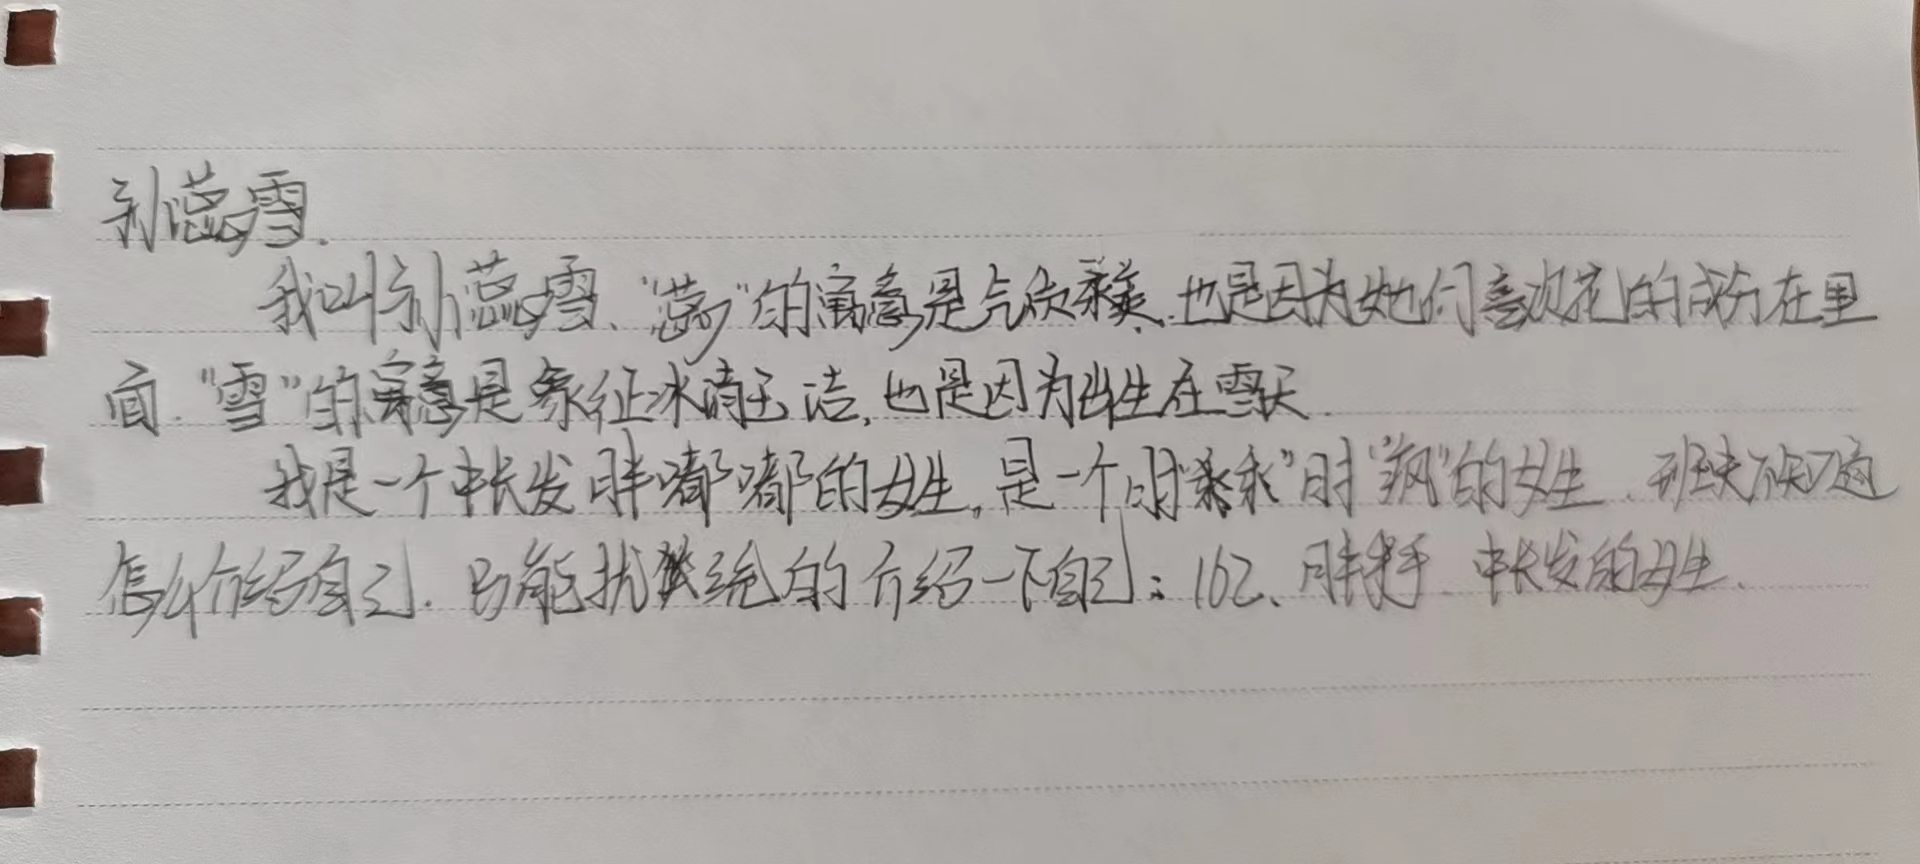 孙蕊雪.
我叫孙蕊雪、"蕊"的寓意是气质柔美.也是因为她们喜欢花的成分在里
面."雪"的寓意是象征冰清玉洁,也是因为出生在雪天.
我是一个中长发胖嘟嘟的女生,是一个时"乖乖"时"疯"的女生.我不知道
怎么介绍自己.只能笼统的介绍一下自己:162、胖胖 中长发的女生.